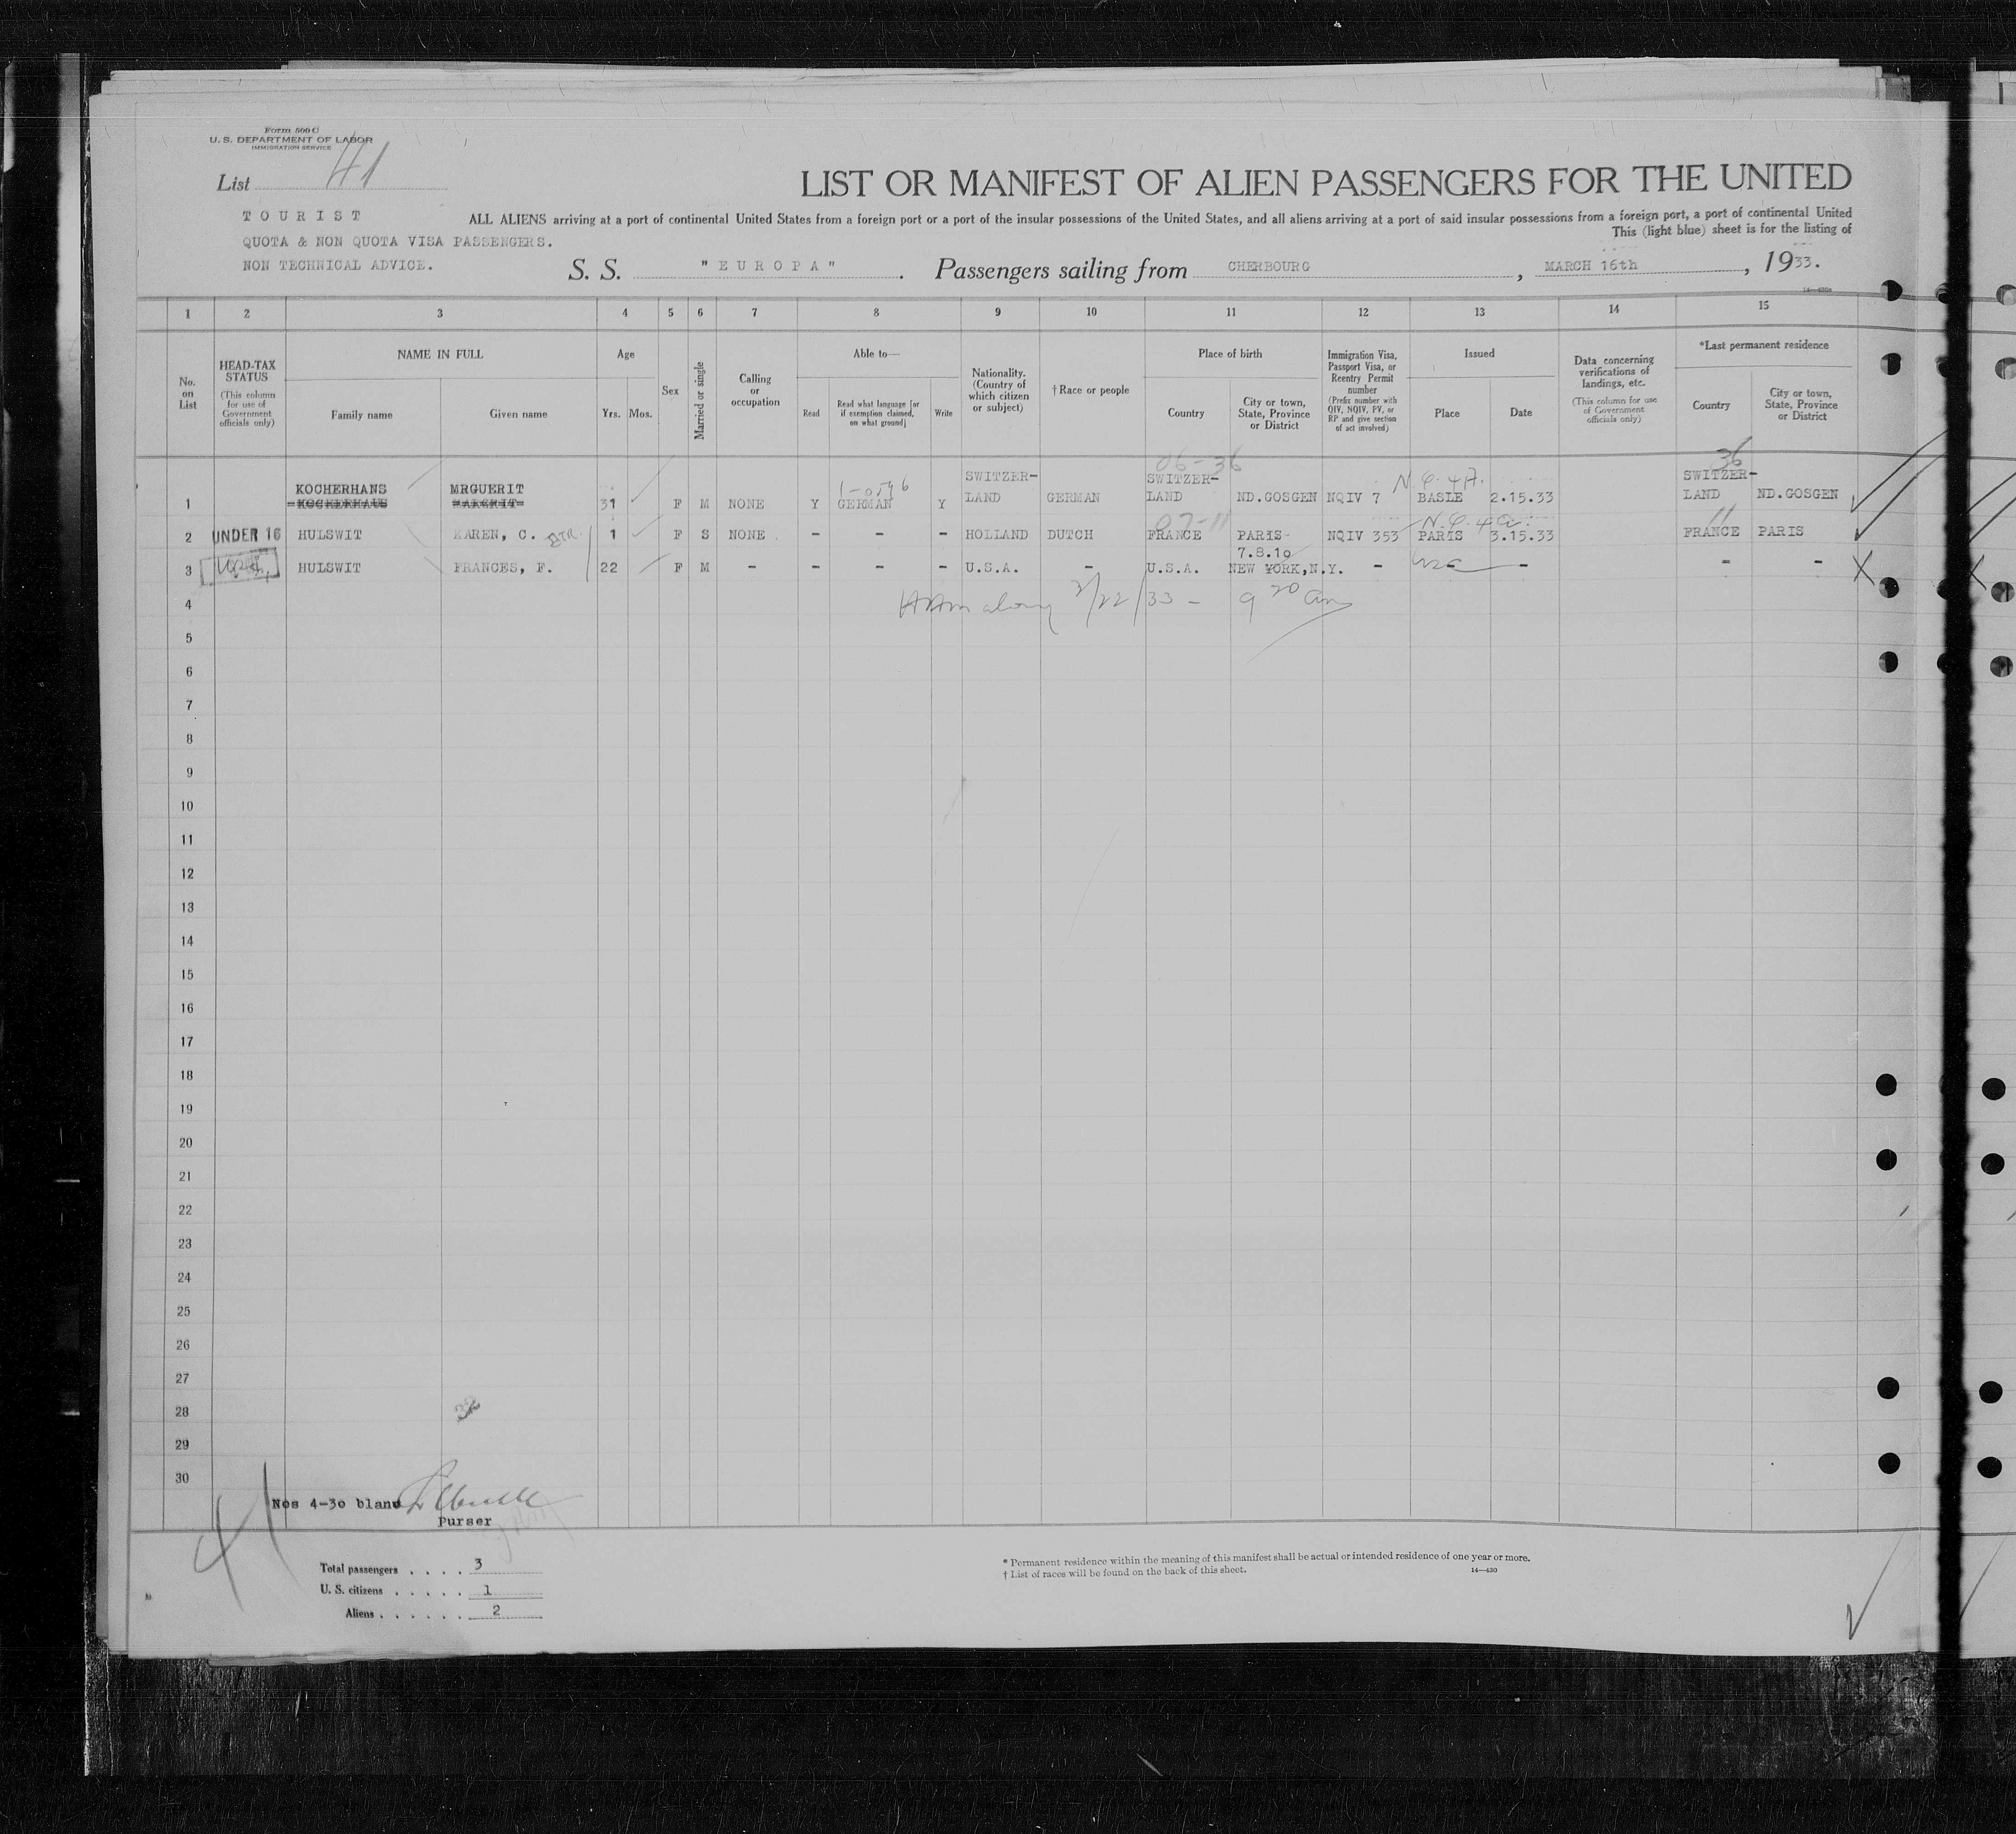 Form 500 C
U. S. DEPARTMENT OF LABOR
IMMIGRATION SERVICE
List 41
LIST OR MANIFEST OF ALIEN PASSENGERS FOR THE UNITED
TOURIST
QUOTA & NON QUOTA VISA PASSENGERS.
NON TECHNICAL ADVICE.
ALL ALIENS arriving at a port of continental United States from a foreign port or a port of the insular possessions of the United States, and all aliens arriving at a port of said insular possessions from a foreign port, a port of continental United
This (light blue) sheet is for the listing of
S. S. "EUROPA". Passengers sailing from CHERBOURG, MARCH 16th, 1933.
1 2 3 4 5 6 7 8 9 10 11 12 13 14 15
No. on List
HEAD-TAX STATUS (This column for use of Government officials only)
NAME IN FULL
Family name Given name
Age
Yrs. Mos.
Sex
Married or single
Calling or occupation
Able to—
Read Read what language [or if exemption claimed, on what ground] Write
Nationality. (Country of which citizen or subject)
†Race or people
Place of birth
Country City or town, State, Province or District
Immigration Visa, Passport Visa, or Reentry Permit number (Prefix number with QIV, NQIV, PV, or RP and give section of act involved)
Issued
Place Date
Data concerning verifications of landings, etc. (This column for use of Government officials only)
*Last permanent residence
Country City or town, State, Province or District
06-36 36
1 KOCHERHANS MRGUERIT 31 F M NONE Y GERMAN Y SWITZER-LAND GERMAN SWITZER-LAND ND.GOSGEN NQIV 7 BASLE 2.15.33 SWITZER-LAND ND.GOSGEN
KOCHERHAUS MARGRIT
07-11 11
2 UNDER 16 HULSWIT KAREN, C. 1 F S NONE - - - HOLLAND DUTCH FRANCE PARIS- NQIV 353 PARIS 3.15.33 FRANCE PARIS
7.8.10
3 HULSWIT FRANCES, F. 22 F M - - - - U.S.A. - U.S.A. NEW YORK,N.Y. - - - -
4
5
6
7
8
9
10
11
12
13
14
15
16
17
18
19
20
21
22
23
24
25
26
27
28
29
30
Nos 4-30 blank
Purser
41
Total passengers . . . . 3
U. S. citizens . . . . . 1
Aliens . . . . . . 2
* Permanent residence within the meaning of this manifest shall be actual or intended residence of one year or more.
† List of races will be found on the back of this sheet.
14—430